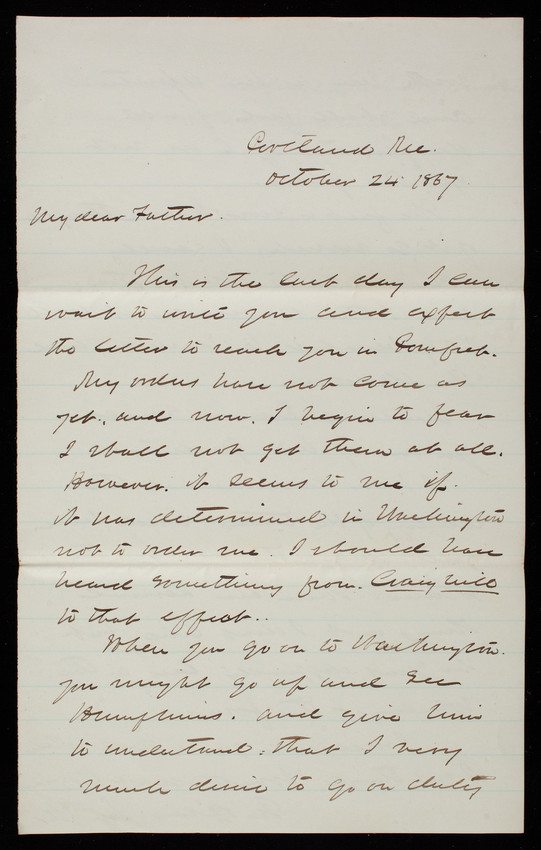 Portland Me.
October 24 1867
My dear Father.
This is the last day I can
wait to write you and expect
the letter to reach you in Pomfret.
My orders have not come as
yet, and now, I begin to fear
I shall not get them at all.
However, it seems to me if
it was determined in Washington
not to order me. I should have
heard something from. Craighill
to that effect..
When you go on to Washington.
you might go up and see
Humphreys. and give him
to understand, that I very
much desire to go on duty